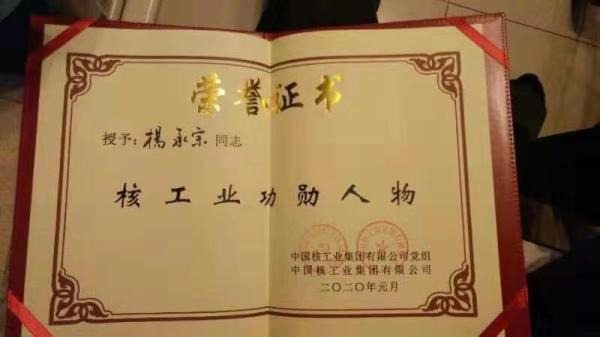 荣誉证书
授予：楊承宗 同志
核工业功勋人物
中国核工业集团有限公司党组
中国核工业集团有限公司
二〇二〇年元月